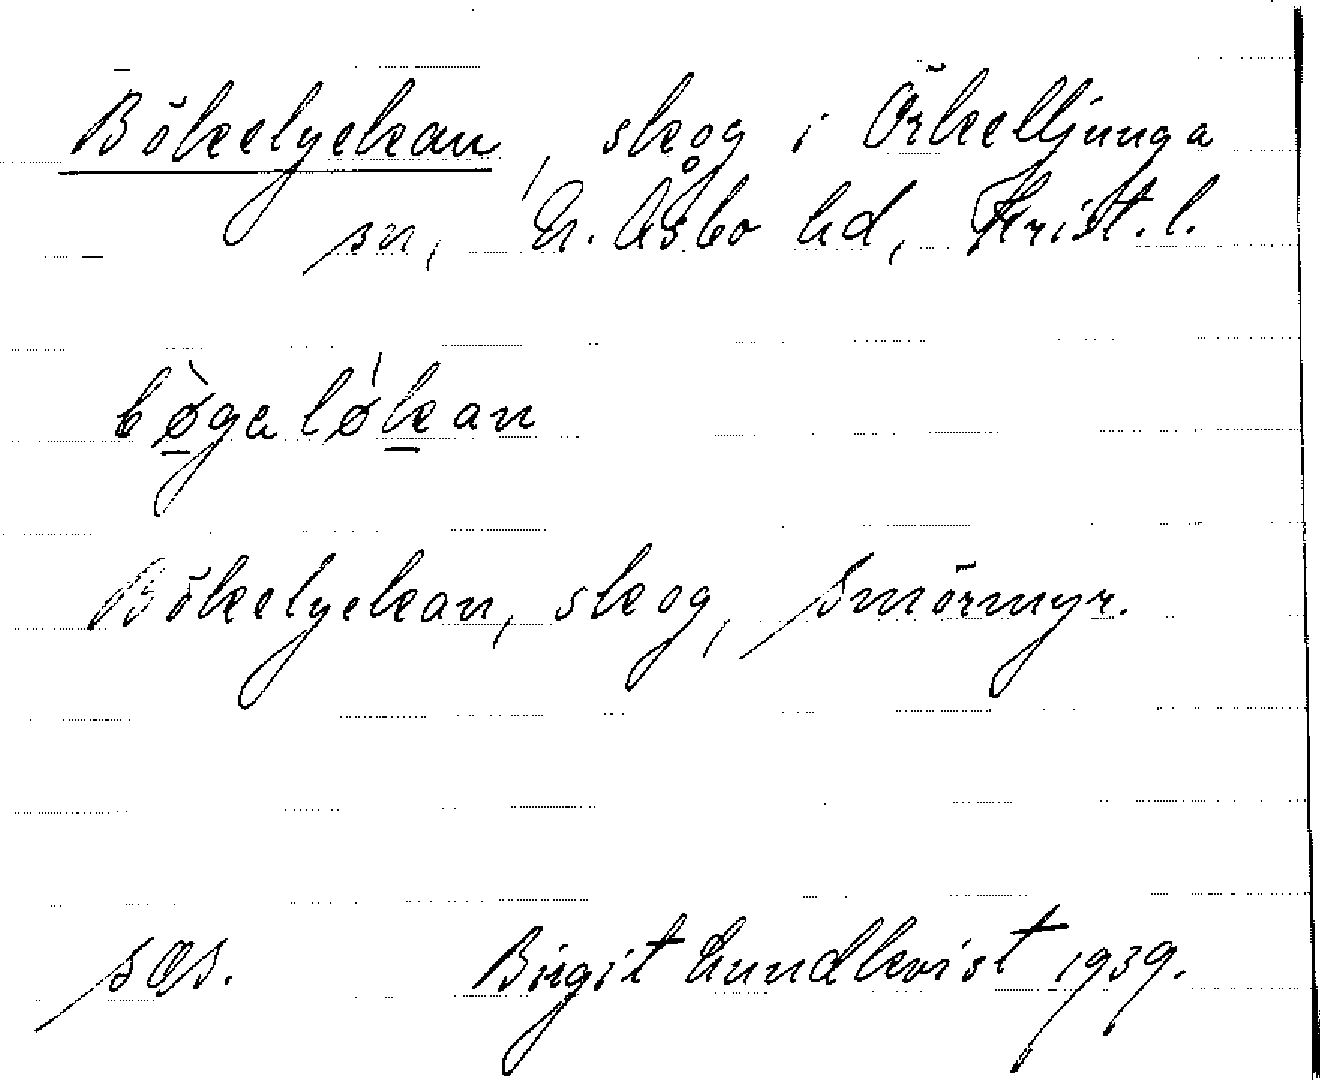 Bökelyckan, skog i Örkelljunga
sn, N. Åsbo hd, Krist. l.
bø̱̀galǿḵan
Bökelyckan, skog, Smörmyr.
Birgit Lundkvist 1939.